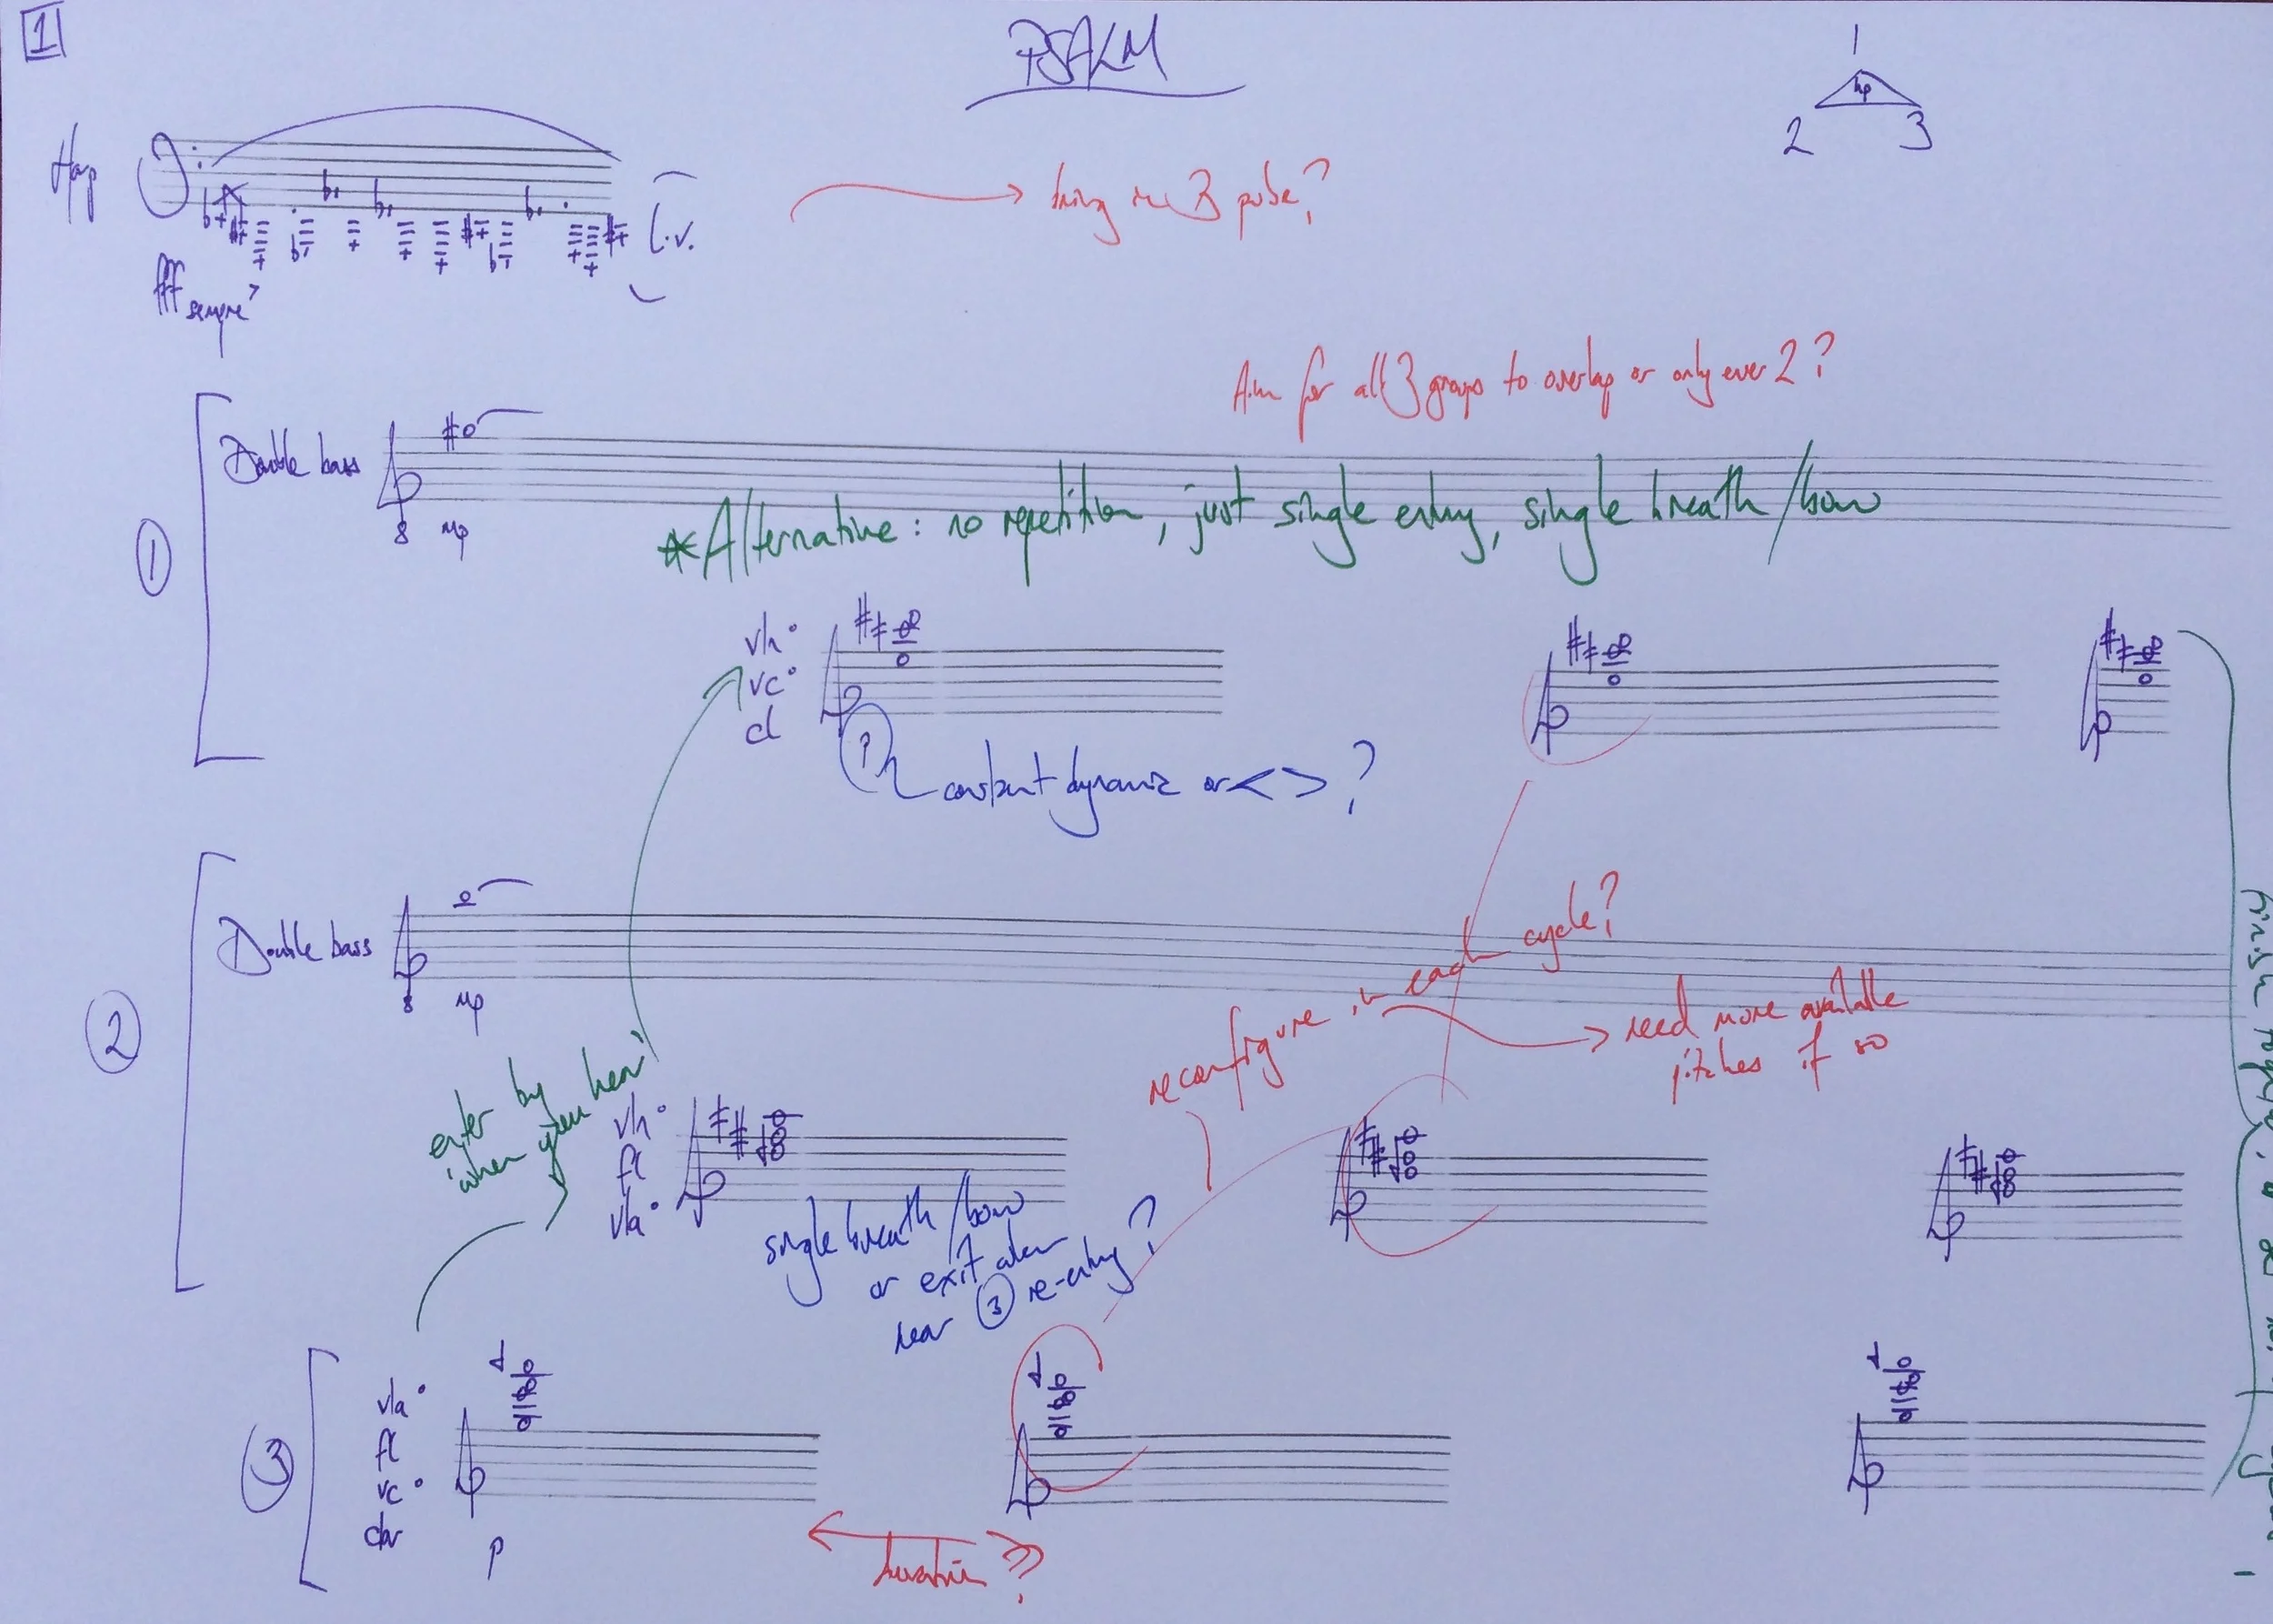 1
PSALM
1
hp
2 3
Harp
l.v.
fff sempre
3 pulse?
Aim for all 3 groups to overlap or only ever 2?
①
Double bass
8 mp
*Alternative: no repetition, just single entry, single breath/bow
vln°
vc°
cl
p
constant dynamic or < > ?
②
Double bass
8 mp
reconfigure in each cycle?
need more available
pitches if so
enter by ear
when given
vln°
fl
vla°
single breath/bow
or exit when
hear ③ re-entry?
finish together,
③
vla°
fl
vc°
p
duration?